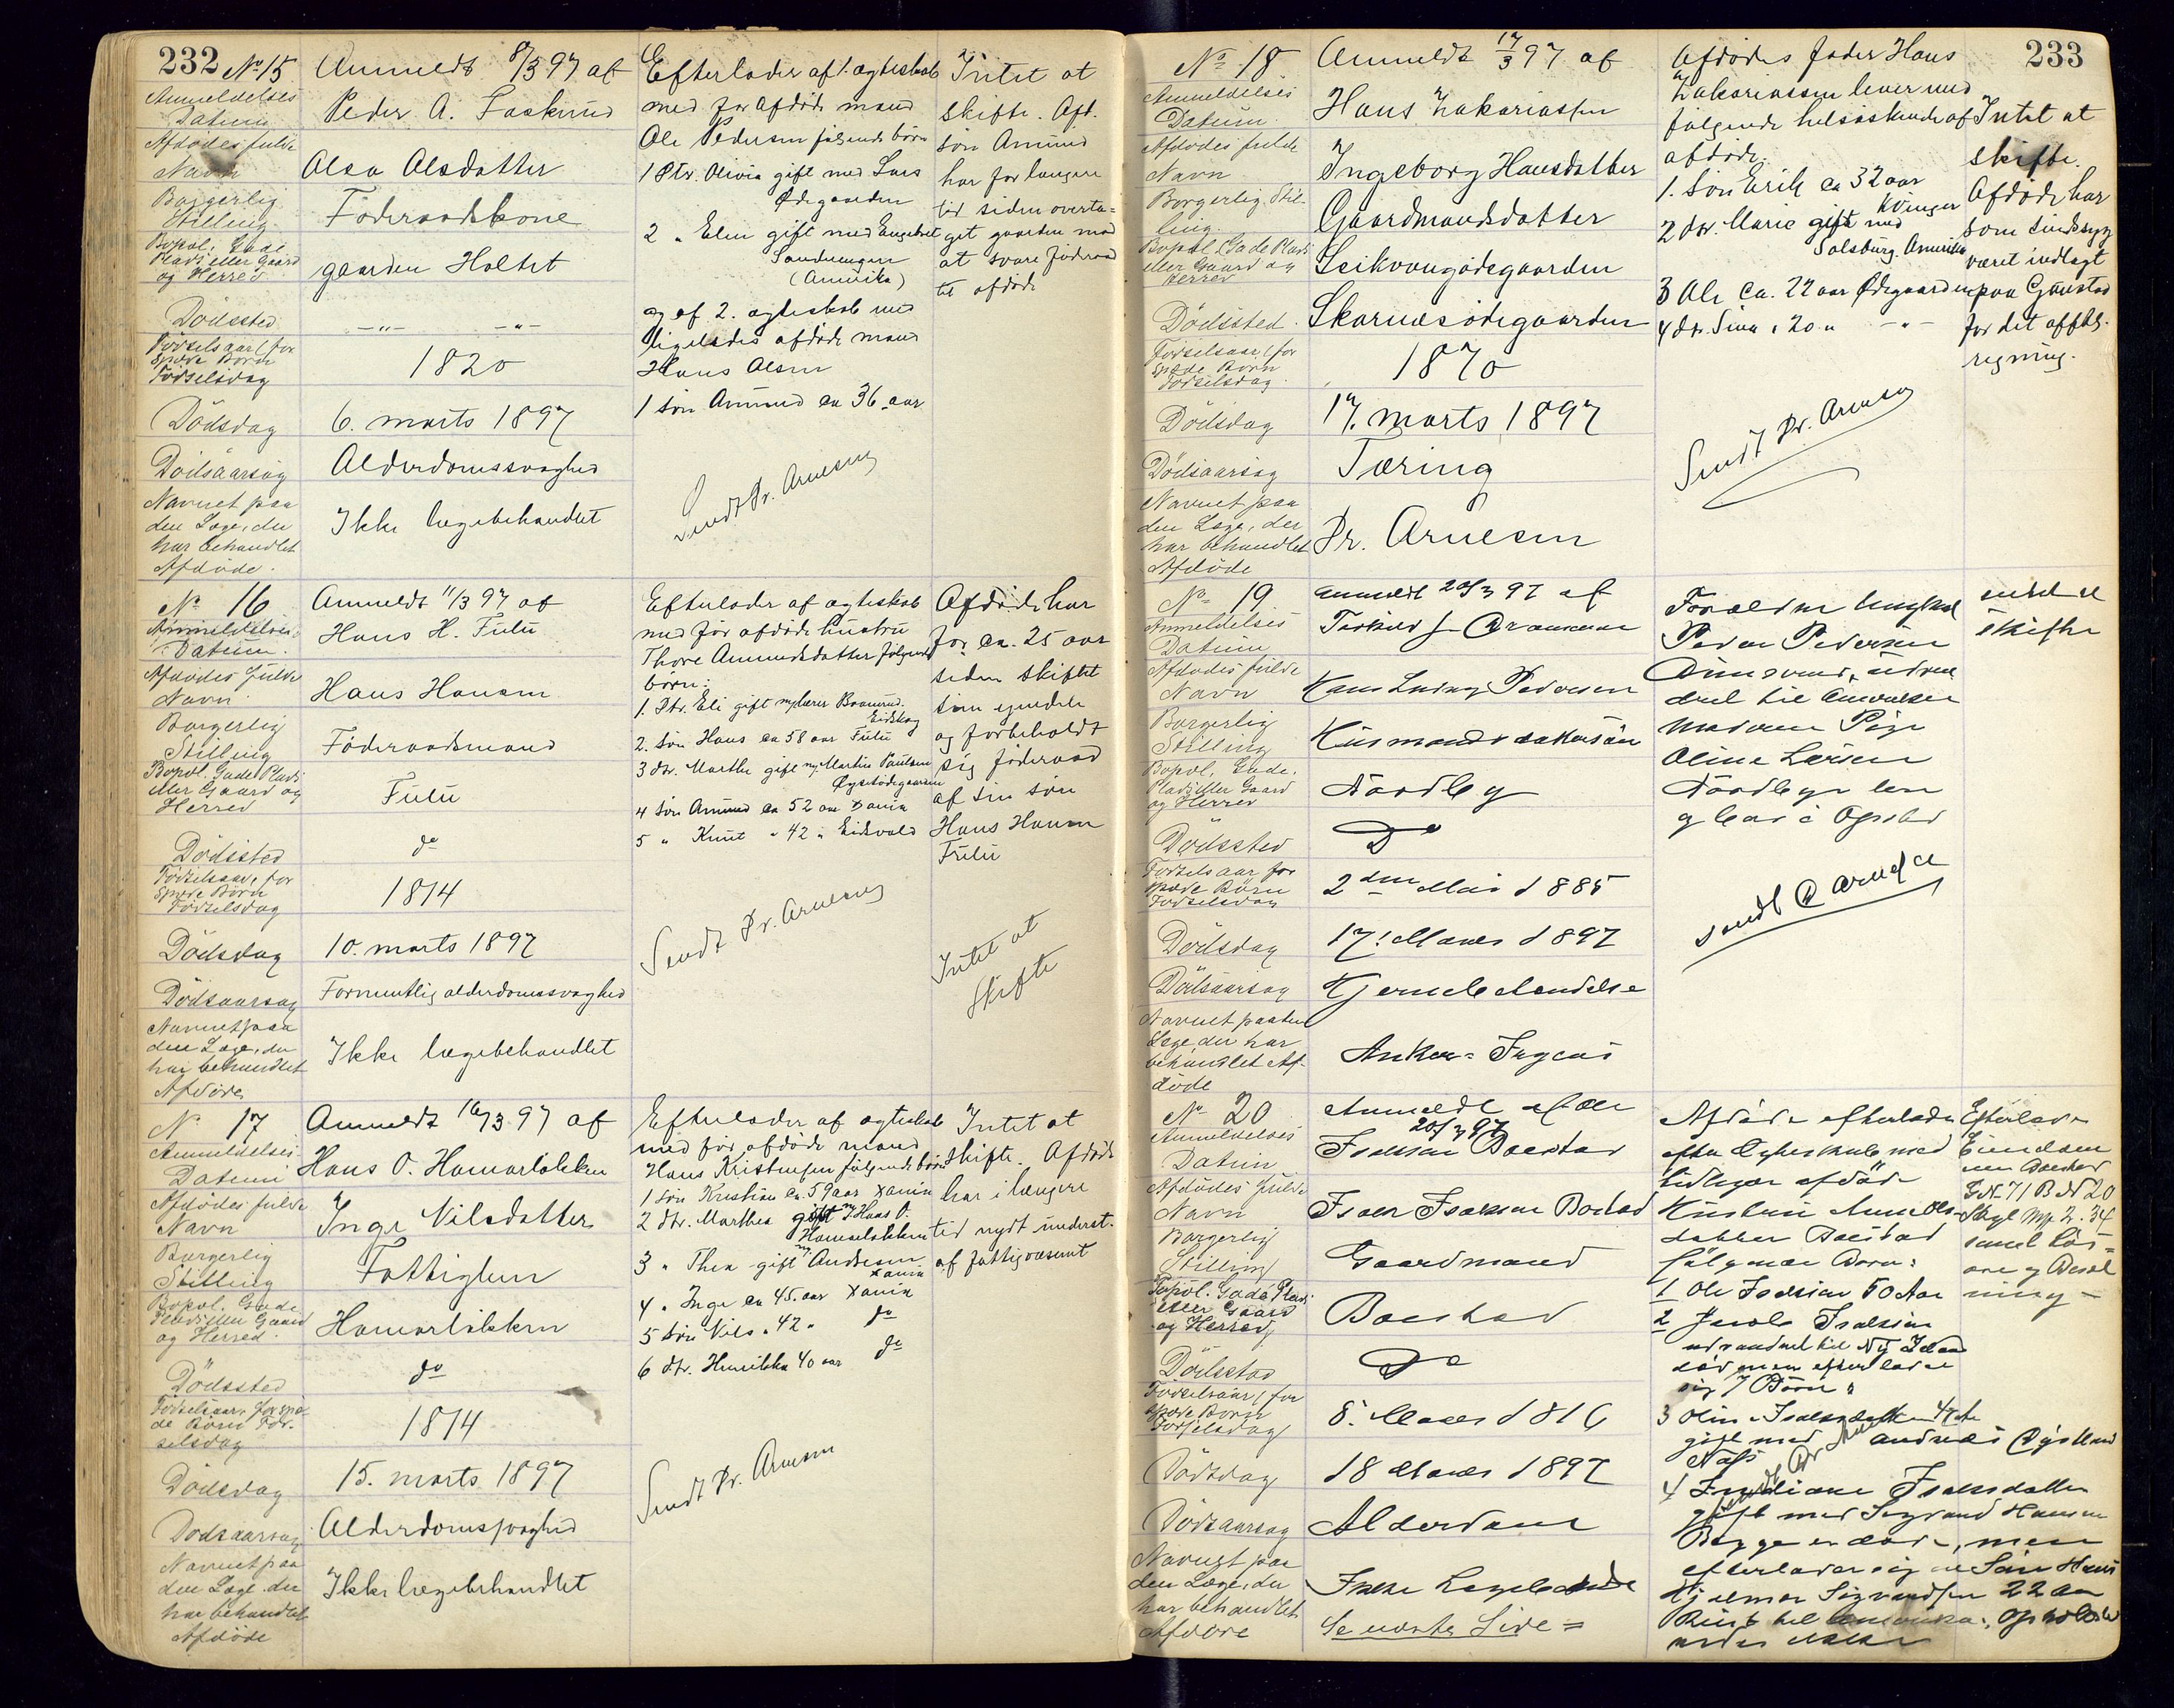 232
No. 15
Anmeldelses
Datum
Anmeldt 8/3 97 af
Peder A. Faskrud
Afdødes fulde
Navn
Olea Olsdatter
Borgerlig
Stilling
Föderaadskone
Bopæl, Gade
Plads eller Gaard
og Herred
gaarden Holtet
Dödssted
—"— —"—
Födselsaar, for
spæde Börn
Födselsdag
1820
Dödsdag
6. marts 1897
Dödsaarsag
Alderdomssvaghed
Navnet paa
den Læge, der
har behandlet
Afdöde.
Ikke lægebehandlet
Efterlader af 1. ægteskab
med før afdöde mand
Ole Pedersen følgende børn
1 Dtr. Olivia gift med Lars
Ødegaarden
2 " Elen gift med Engebret
(Amerika)
og af 2. ægteskab med
ligeledes afdöde mand
Hans Olsen
1 sön Amund ca 36 aar
Sendt Dr. Arnesen
Intet at
skifte. Afd.
sön Amund
har for længere
tid siden overta-
get gaarden mod
at svare föderaad
til afdöde
No 16
Anmeldelses
Datum.
Anmeldt 11/3 97 af
Hans H. Fulu
Afdödes fulde
Navn
Hans Hansen
Borgerlig
Stilling
Föderaadsmand
Bopæl. Gade Plads
eller Gaard og
Herred
Fulu
Dödssted
do
Födselsaar, for
spæde Börn
Födselsdag
1814
Dödsdag
10. marts 1897
Dödsaarsag
Formentlig alderdomssvaghed
Navnet paa
den Læge, der
har behandlet
Afdöde
Ikke lægebehandlet
Efterlader af ægteskab
med før afdöde hustru
Thore Amundsdatter følgende
børn:
1. Dtr. Eli gift m/
Eidskog
2. sön Hans ca 58 aar Fulu
3 dtr. Marthe gift m/ Martin Paulsen
4 sön Amund ca 52 aar Xania
5 " Knut " 42 " Eidsvold
Sendt Dr. Arnesen
Afdöde har
for ca. 25 aar
siden skiftet
sin eiendele
og forbeholdt
sig föderaad
af sin sön
Hans Hansen
Fulu
Intet at
skifte
No 17
Anmeldelses
Datum
Anmeldt 16/3 97 af
Hans O. Hamarløkken
Afdödes fulde
Navn
Inge Nilsdatter
Borgerlig
Stilling
Fattiglem
Bopæl. Gade
Plads eller Gaard
og Herred.
Hamarløkken
Dödssted
do
Födselsaar, for spæ-
de Börn Föd-
selsdag
1814
Dödsdag
15. marts 1897
Dödsaarsag
Alderdomssvaghed
Navnet paa
den Læge der
har behandlet
Afdöde
Ikke lægebehandlet
Efterlader af ægteskab
med før afdöde mand
Hans Kristensen følgende børn
1 sön Kristian ca. 59 aar Xania
2 dtr. Marthea gift m/ Hans O.
Hamarløkken
3 " Thea gift m/ Andresen
Xania
4 " Inge ca 45. aar Xania
5 sön Nils " 42 " do
6 dtr. Henrikka 40 aar do
Sendt Dr. Arnesen
Intet at
skifte. Afdöde
har i længere
tid nydt underst.
af fattigvæsenet
233
No 18
Anmeldelses
Datum.
Anmeldt 17/3 97 af
Hans Zakariassen
Afdödes fulde
Navn
Ingeborg Hansdatter
Borgerlig Stil-
ling.
Gaardmandsdatter
Bopæl. Gade Plads
eller Gaard og
Herred
Leikvangødegaarden
Dödssted.
Skarnæsødegaarden
Födselsaar, for
spæde Börn
Födselsdag.
1870
Dödsdag
17. marts 1897
Dödsaarsag
Tæring
Navnet paa
den Læge, der
har behandlet
Afdöde
Dr. Arnesen
Afdödes fader Hans
Zakariassen lever med
følgende helsøskende af
afdøde.
1. sön Erik ca 32 aar
Kvinger
2 dtr. Marie gift med
Salsburg. Amerika
3 Ole ca. 22 aar Ødegaarden
4 dtr. Sina " 20 " —"—
Sendt Dr. Arnesen
Intet at
skifte.
Afdöde har
som sindssyg
været indlagt
paa Gaustad
for det offtl.
regning.
No 19
Anmeldelses
Datum
Anmeldt 20/3 97 af
Afdödes fulde
Navn
Hans Ludvig Pedersen
Borgerlig
Stilling
Husmandsdattersön
Bopæl, Gade,
Plads eller Gaard
og Herred
Nordby
Dödssted
Do
Födselsaar for
spæde Börn
Födselsdag
2den Mai 1885
Dödsdag
17. Marts 1897
Dödsaarsag
Navnet paa den
Læge, der har
behandlet Af-
döde
Anker, Fuglaas
Forældre Ungkarl
Peder Pedersen
udvan
dret til Amerika
Moderen Pige
Oline Larsen
sendt Dr Arnesen
intet at
skifte
No 20
Anmeldelses
Datum
Anmeldt af Ole
20/3 97
Isaksen Boerstad
Afdödes fulde
Navn
Isak Isaksen Borstad
Borgerlig
Stilling
Gaardmand
Bopæl. Gade Plads
eller Gaard
og Herred,
Boerstad
Dödssted
Do
Födselsaar, for
spæde Börn
Födselsdag
8. Marts 1816
Dödsdag
18 Marts 1897
Dödsaarsag
Alderdom
Navnet paa
den Læge, der
har behandlet
Afdöde
Ikke Lægebehandl
Se næste Side =
Afdöde efterlader
efter Egteskab med
tidligere afdöde
datter Boerstad
fölgende Börn:
1 Ole Isaksen 50 Aar
2 Jacob Isaksen
udvandret til Ny Zeland
död men efterlader
sig 7 Börn
3 Oline Isaksdatter 47 Aar
gift med Andreas
Næs
4 Isaksdatter
gift med Sigvard Hansen
Begge er döde, men
efterlader sig en Sön Hans
Hjalmar Sigvardsen 22 Aar
Reist til Amerika, Opholdsted
Efterlader
Eiendommen
Boerstad
G.No 71 B.No 20
Skyl Mrk 2.34
samt Lös-
öre og Besæt
ning —